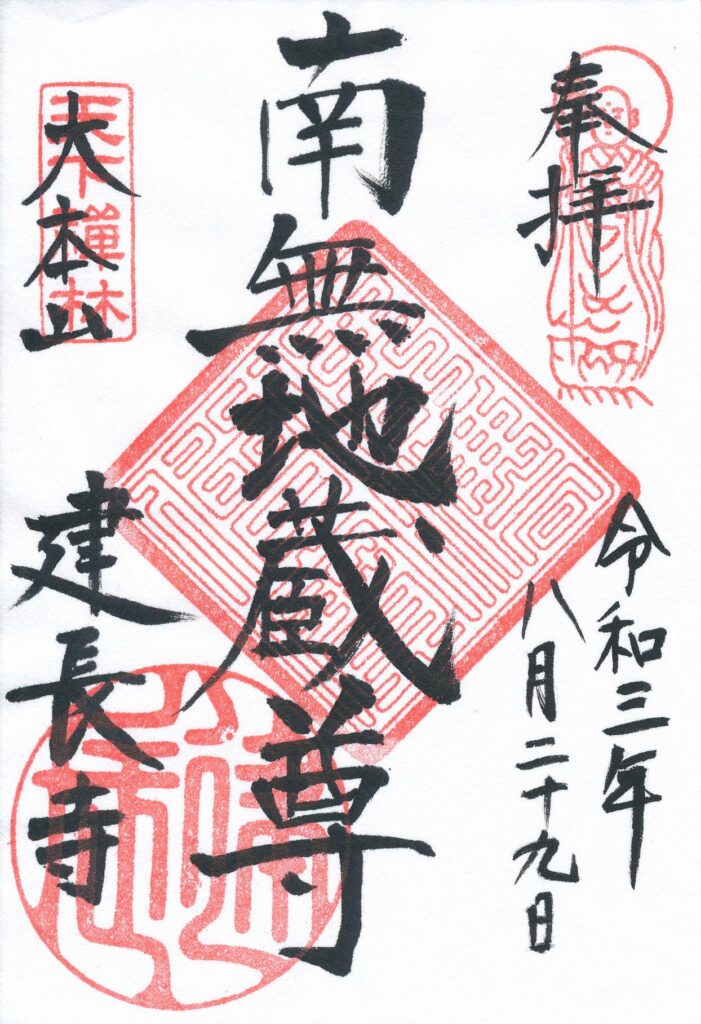 奉拝
令和三年
八月二十九日
南無地蔵尊
大本山
建長寺
天下禅林